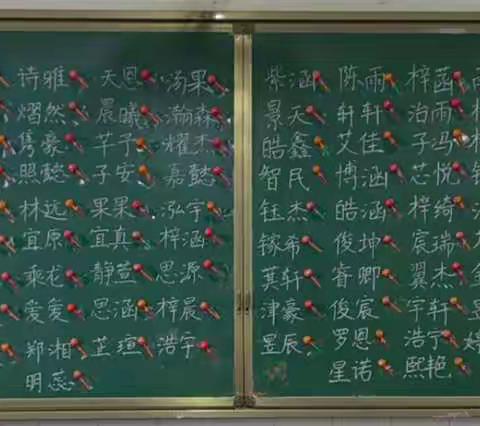 诗雅 天恩 汤果
熠然 晨曦 瀚森
隽豪 芊予 耀杰
照懿 子安 嘉懿
林远 果果 泓宇
宜原 宜真 梓涵
乘龙 静萱 思源
爱爱 思涵 梓晨
郑相 芷瑄 浩宇
明蕊
紫涵 陈雨 梓菡
景天 轩轩 治雨
皓鑫 艾佳 子冯
智民 博涵 芯悦
钰杰 皓涵 梓绮
镓希 俊坤 宸瑞
萁轩 睿卿 翼杰
津豪 俊宸 宇轩
昱辰 罗恩 浩宁
星诺 熙艳